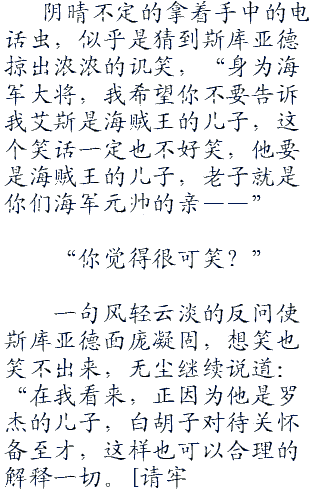 阴晴不定的拿着手中的电
话虫，似乎是猜到斯库亚德
掠出浓浓的讥笑，“身为海
军大将，我希望你不要告诉
我艾斯是海贼王的儿子，这
个笑话一定也不好笑，他要
是海贼王的儿子，老子就是
你们海军元帅的亲——”
“你觉得很可笑？”
一句风轻云淡的反问使
斯库亚德面庞凝固，想笑也
笑不出来，无尘继续说道：
“在我看来，正因为他是罗
杰的儿子，白胡子对待关怀
备至才，这样也可以合理的
解释一切。[请牢